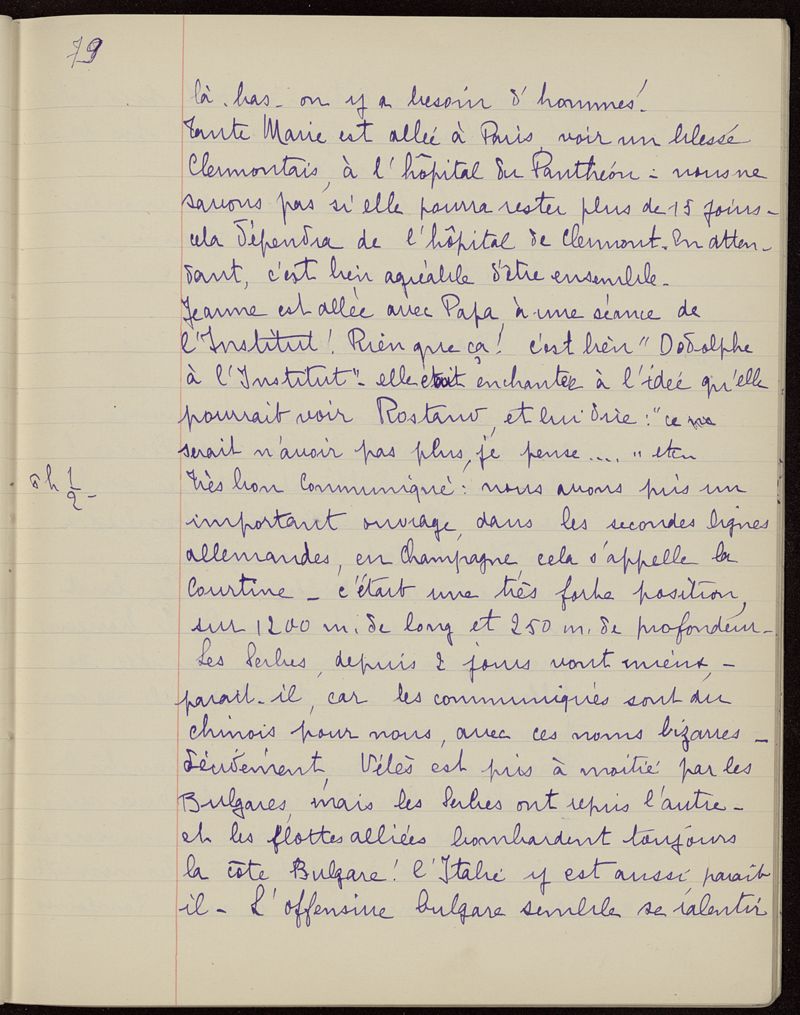 79
là-bas - on y a besoin d'hommes!
Tante Marie est allée à Paris, voir un blessé
Clermontais, à l'hôpital du Panthéon - nous ne
savons pas si elle pourra rester plus de 15 jours -
cela dépendra de l'hôpital de Clermont. En atten-
dant, c'est bien agréable d'être ensemble -
Jeanne est allée avec Papa, à une séance de
l'Institut! Rien que ça! c'est bien "Dodolphe
à l'Institut" - elle était enchantée à l'idée qu'elle
pourrait voir Rostand, et lui dire: "ce ne
serait n'avoir pas plus, je pense .... " etc
5h 1/2 -
Très bon Communiqué: nous avons pris un
important ouvrage, dans les secondes lignes
allemandes, en Champagne, cela s'appelle la
Courtine - c'était une très forte position,
sur 1200 m. de long et 250 m. de profondeur -
Les Serbes, depuis 2 jours vont mieux, -
parait-il, car les communiqués sont du
chinois pour nous, avec ces noms bizarres -
décidément, Vélès est pris à moitié par les
Bulgares, mais les Serbes ont repris l'autre -
et les flottes alliées bombardent toujours
la côte Bulgare! l'Italie y est aussi, parait
il - L'offensive bulgare semble se ralentir